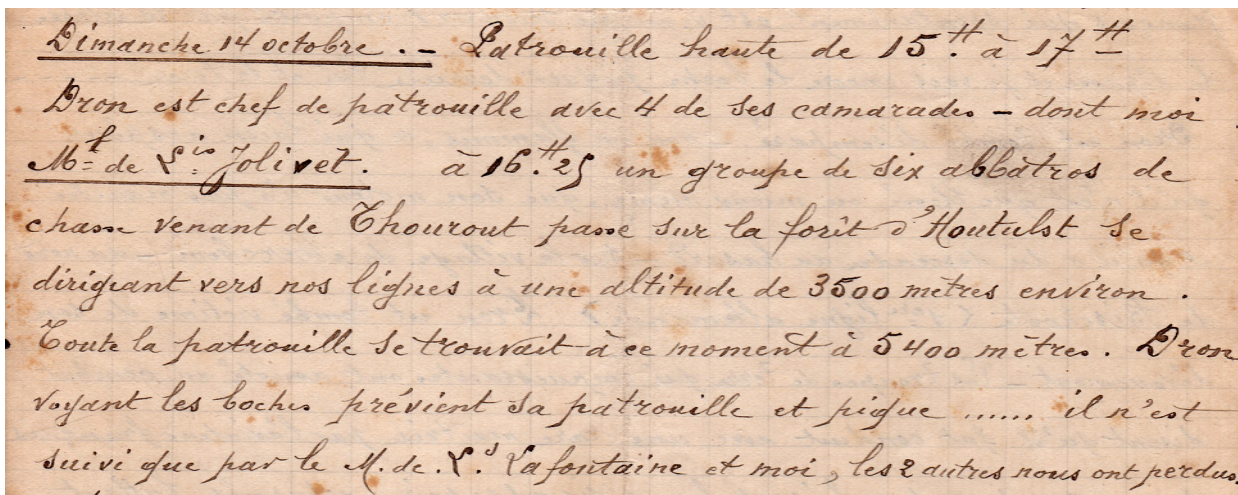 Dimanche 14 octobre . – Patrouille haute de 15.H à 17 H
Dron est chef de patrouille avec 4 de ses camarades – dont moi .
Mf de Lis Jolivet. à 16.H 25 un groupe de six albatros de
chasse venant de Thourout passe sur la forêt d'Houtulst se
dirigeant vers nos lignes à une altitude de 3500 mètres environ .
Toute la patrouille se trouvait à ce moment à 5400 mètres . Dron
voyant les boches prévient sa patrouille et pique ...... il n'est
suivi que par le M. de . L.s Lafontaine et moi, les 2 autres nous ont perdus.